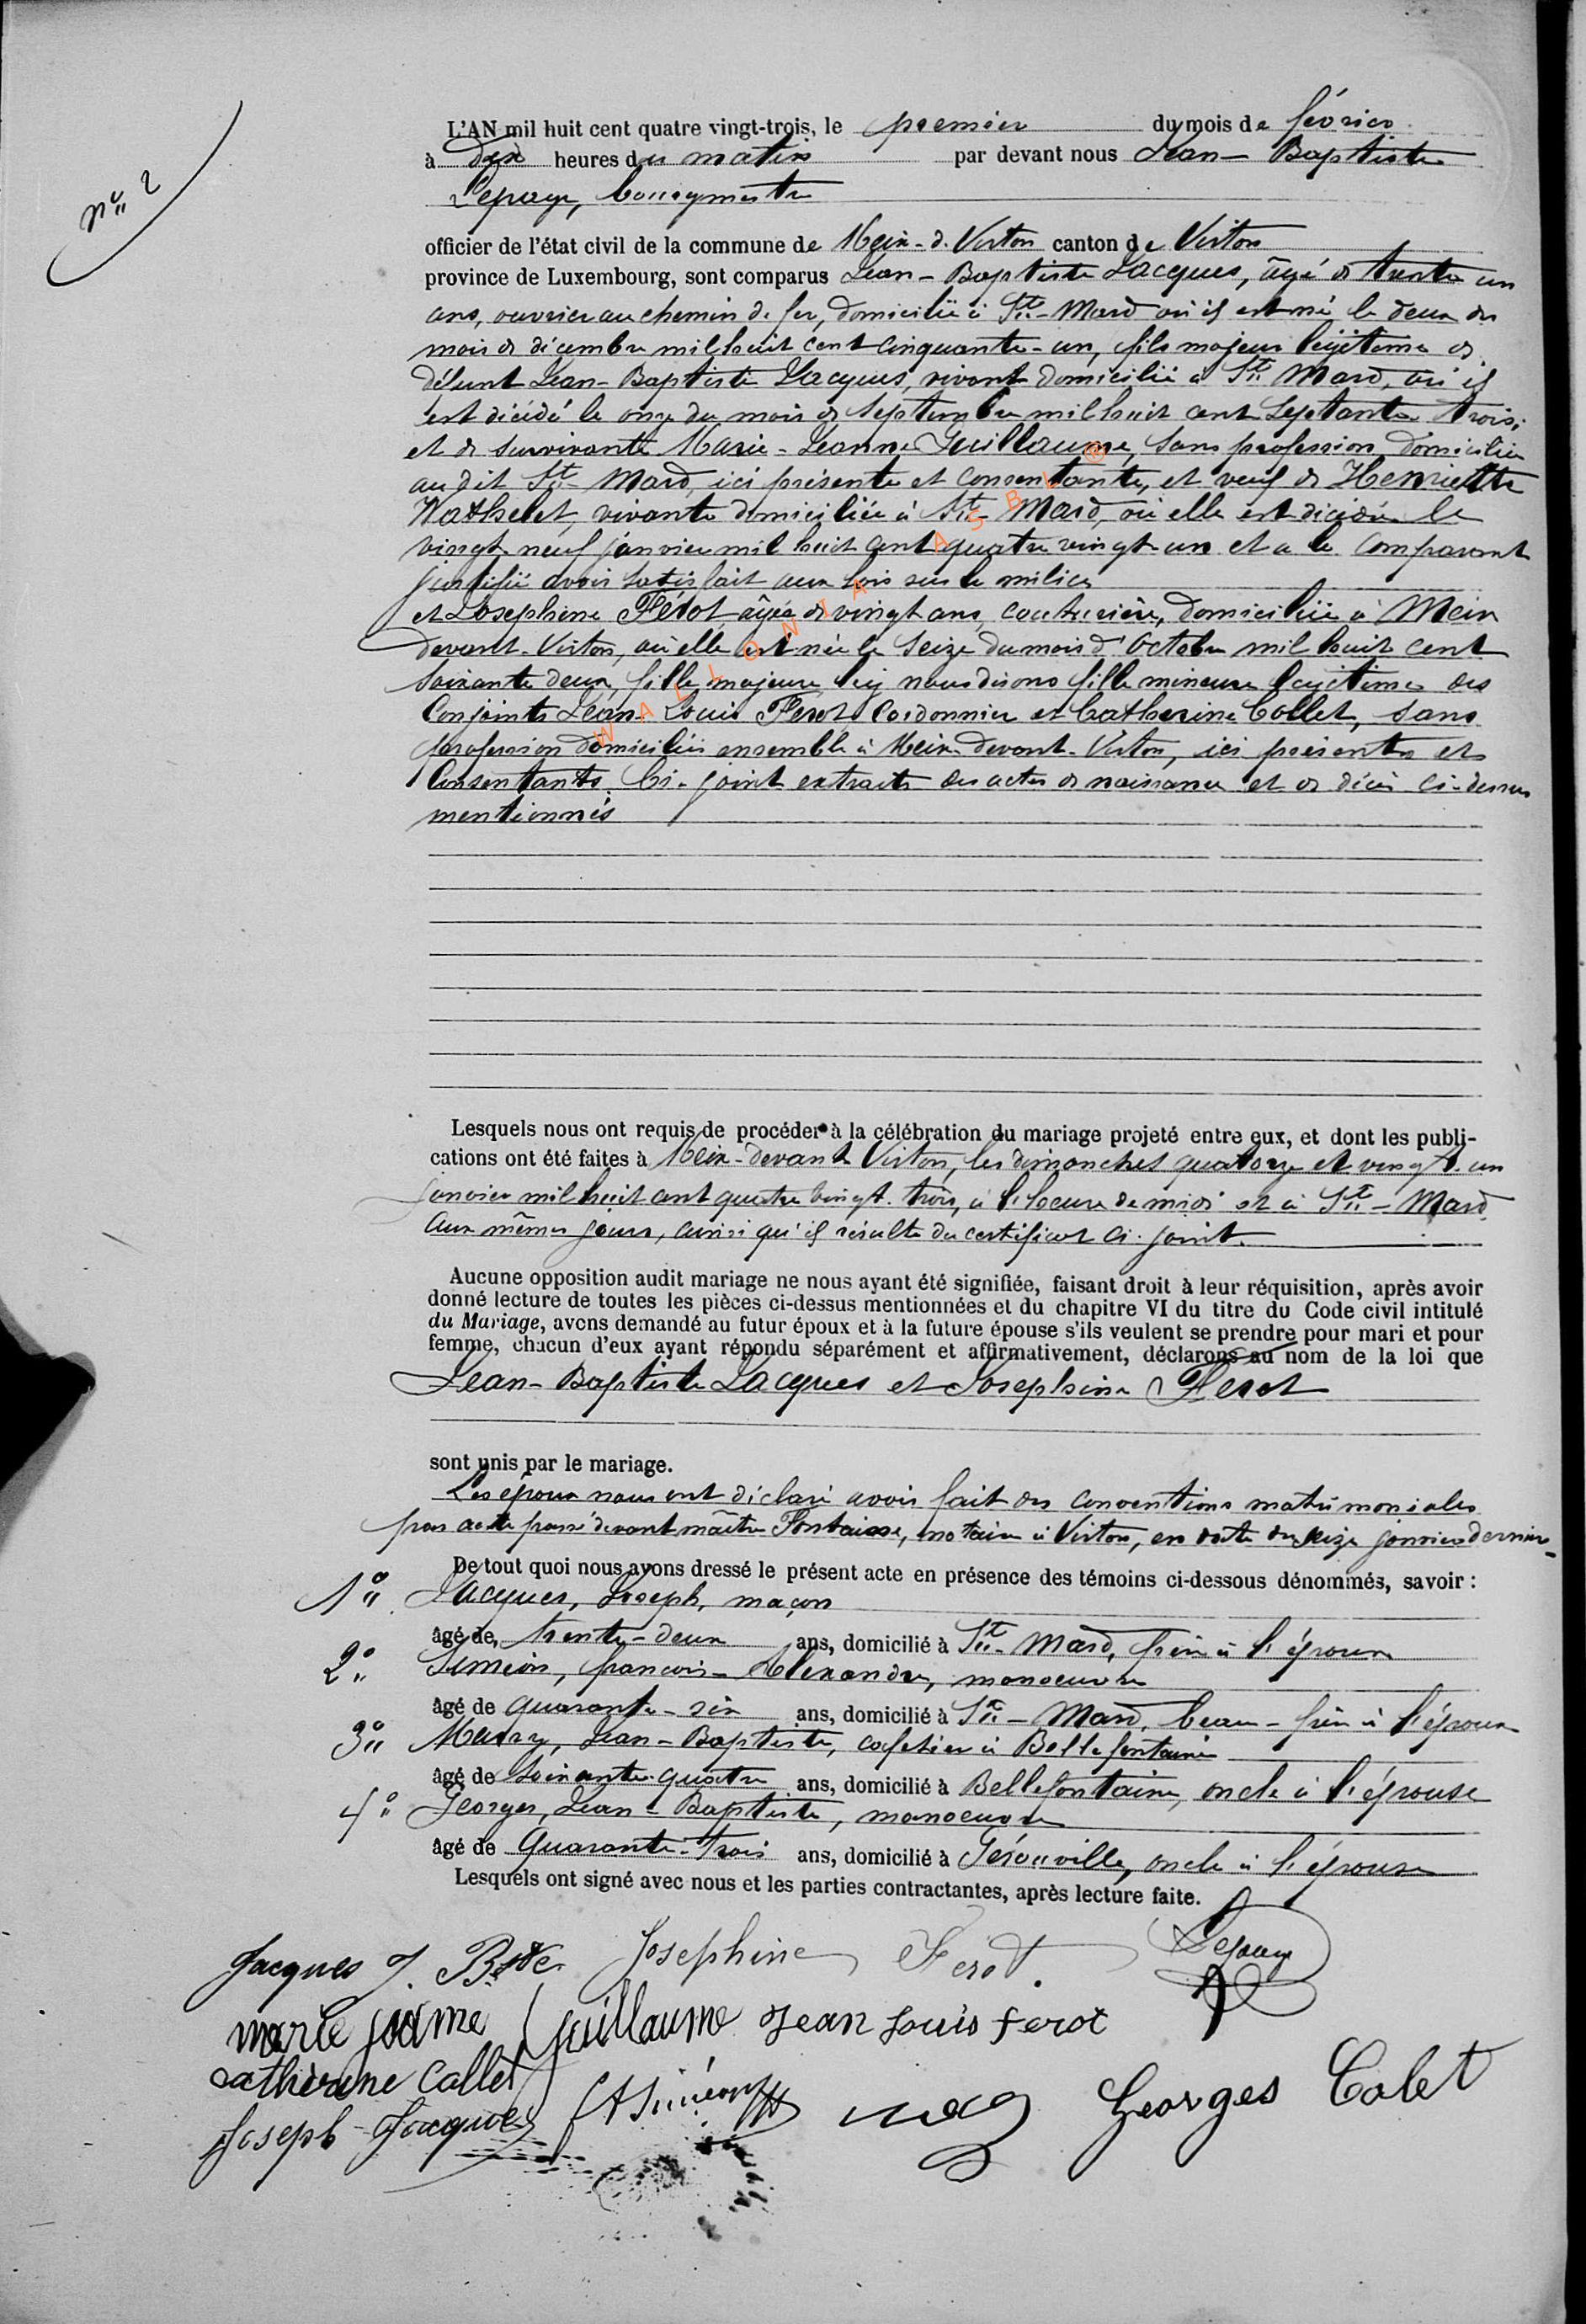 n° 2
L'AN mil huit cent quatre vingt-trois, le premier du mois de février
à dix heures du matin par devant nous Jean-Baptiste
Lepage, bourgmestre
officier de l'état civil de la commune de Meix-d. Virton canton de Virton
province de Luxembourg, sont comparus Jean-Baptiste Jacques, âgé de trente un
ans, ouvrier au chemin de fer, domicilié à St-Mard où il est né le deux du
mois de décembre mil huit cent cinquante-un, fils majeur légitime de
défunt Jean-Baptiste Jacques, vivant domicilié à St Mard, où il
est décédé le onze du mois de septembre mil huit cent septante trois,
et de survivante Marie-Jeanne Guillaume, sans profession domiciliée
au dit St-Mard, ici présente et consentante, et veuf de Henriette
Nathelet, vivante domiciliée à St-Mard, où elle est décédée le
vingt-neuf janvier mil huit cent quatre vingt-un et a le comparant
justifié avoir satisfait aux lois sur la milice
et Josephine Férot âgée de vingt ans, couturière, domiciliée à Meix
devant-Virton, où elle est née le seize du mois d'octobre mil huit cent
soixante deux, fille majeure leg nous disons fille mineure légitime des
conjoints Jean-Louis Férot cordonnier et Catherine Collet, sans
profession domiciliés ensemble à Meix-devant-Virton, ici présents et
consentants. Ci-joint extraits des actes de naissance et de décès ci-dessus
mentionnés
WALLONIA ASBL ®
Lesquels nous ont requis de procéder à la célébration du mariage projeté entre eux, et dont les publi-
cations ont été faites à Meix-devant Virton, les dimanches quatorze et vingt-un
janvier mil huit cent quatre vingt-trois, à l'heure de midi et à St-Mard
aux mêmes jours, ainsi qu'il résulte du certificat ci-joint.
Aucune opposition audit mariage ne nous ayant été signifiée, faisant droit à leur réquisition, après avoir
donné lecture de toutes les pièces ci-dessus mentionnées et du chapitre VI du titre du Code civil intitulé
du Mariage, avons demandé au futur époux et à la future épouse s'ils veulent se prendre pour mari et pour
femme, chacun d'eux ayant répondu séparément et affirmativement, déclarons au nom de la loi que
Jean-Baptiste Jacques et Josephine Ferot
sont unis par le mariage.
Les époux nous ont déclaré avoir fait des conventions matrimoniales
par acte passé devant maître Fontaine, notaire à Virton, en date du seize janvier dernier-
De tout quoi nous avons dressé le présent acte en présence des témoins ci-dessous dénommés, savoir :
1° Jacques, Joseph, maçon
âgé de trente-deux ans, domicilié à St-Mard, frère à l'époux
2° Siméon, françois-Alexandre, manoeuvre
âgé de quarante-six ans, domicilié à St-Mard, beau-frère à l'époux
3° Maury, Jean-Baptiste, cafetier à Bellefontaine
âgé de soixante-quatre ans, domicilié à Bellefontaine, oncle à l'épouse
4° Georges, Jean-Baptiste, manoeuvre
âgé de quarante-trois ans, domicilié à Gérouville, oncle à l'épouse
Lesquels ont signé avec nous et les parties contractantes, après lecture faite.
Jacques J. Bste Josephine Férot. Lepage
marie jeanne guillaume Jean Louis ferot
catherine Collet
Joseph Jacques FA Siméon Georges Colet